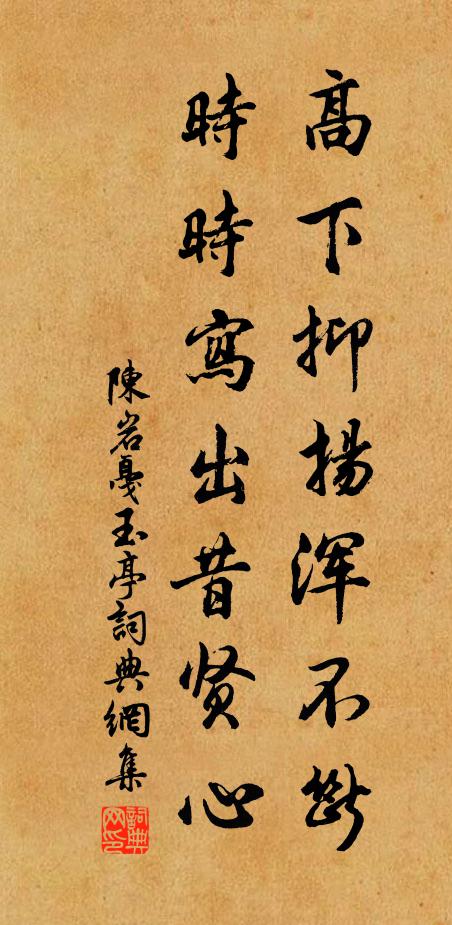 高下抑揚浑不斷
時時寫出昔贤心
陳岩戛玉亭詞典網集
詞典网印